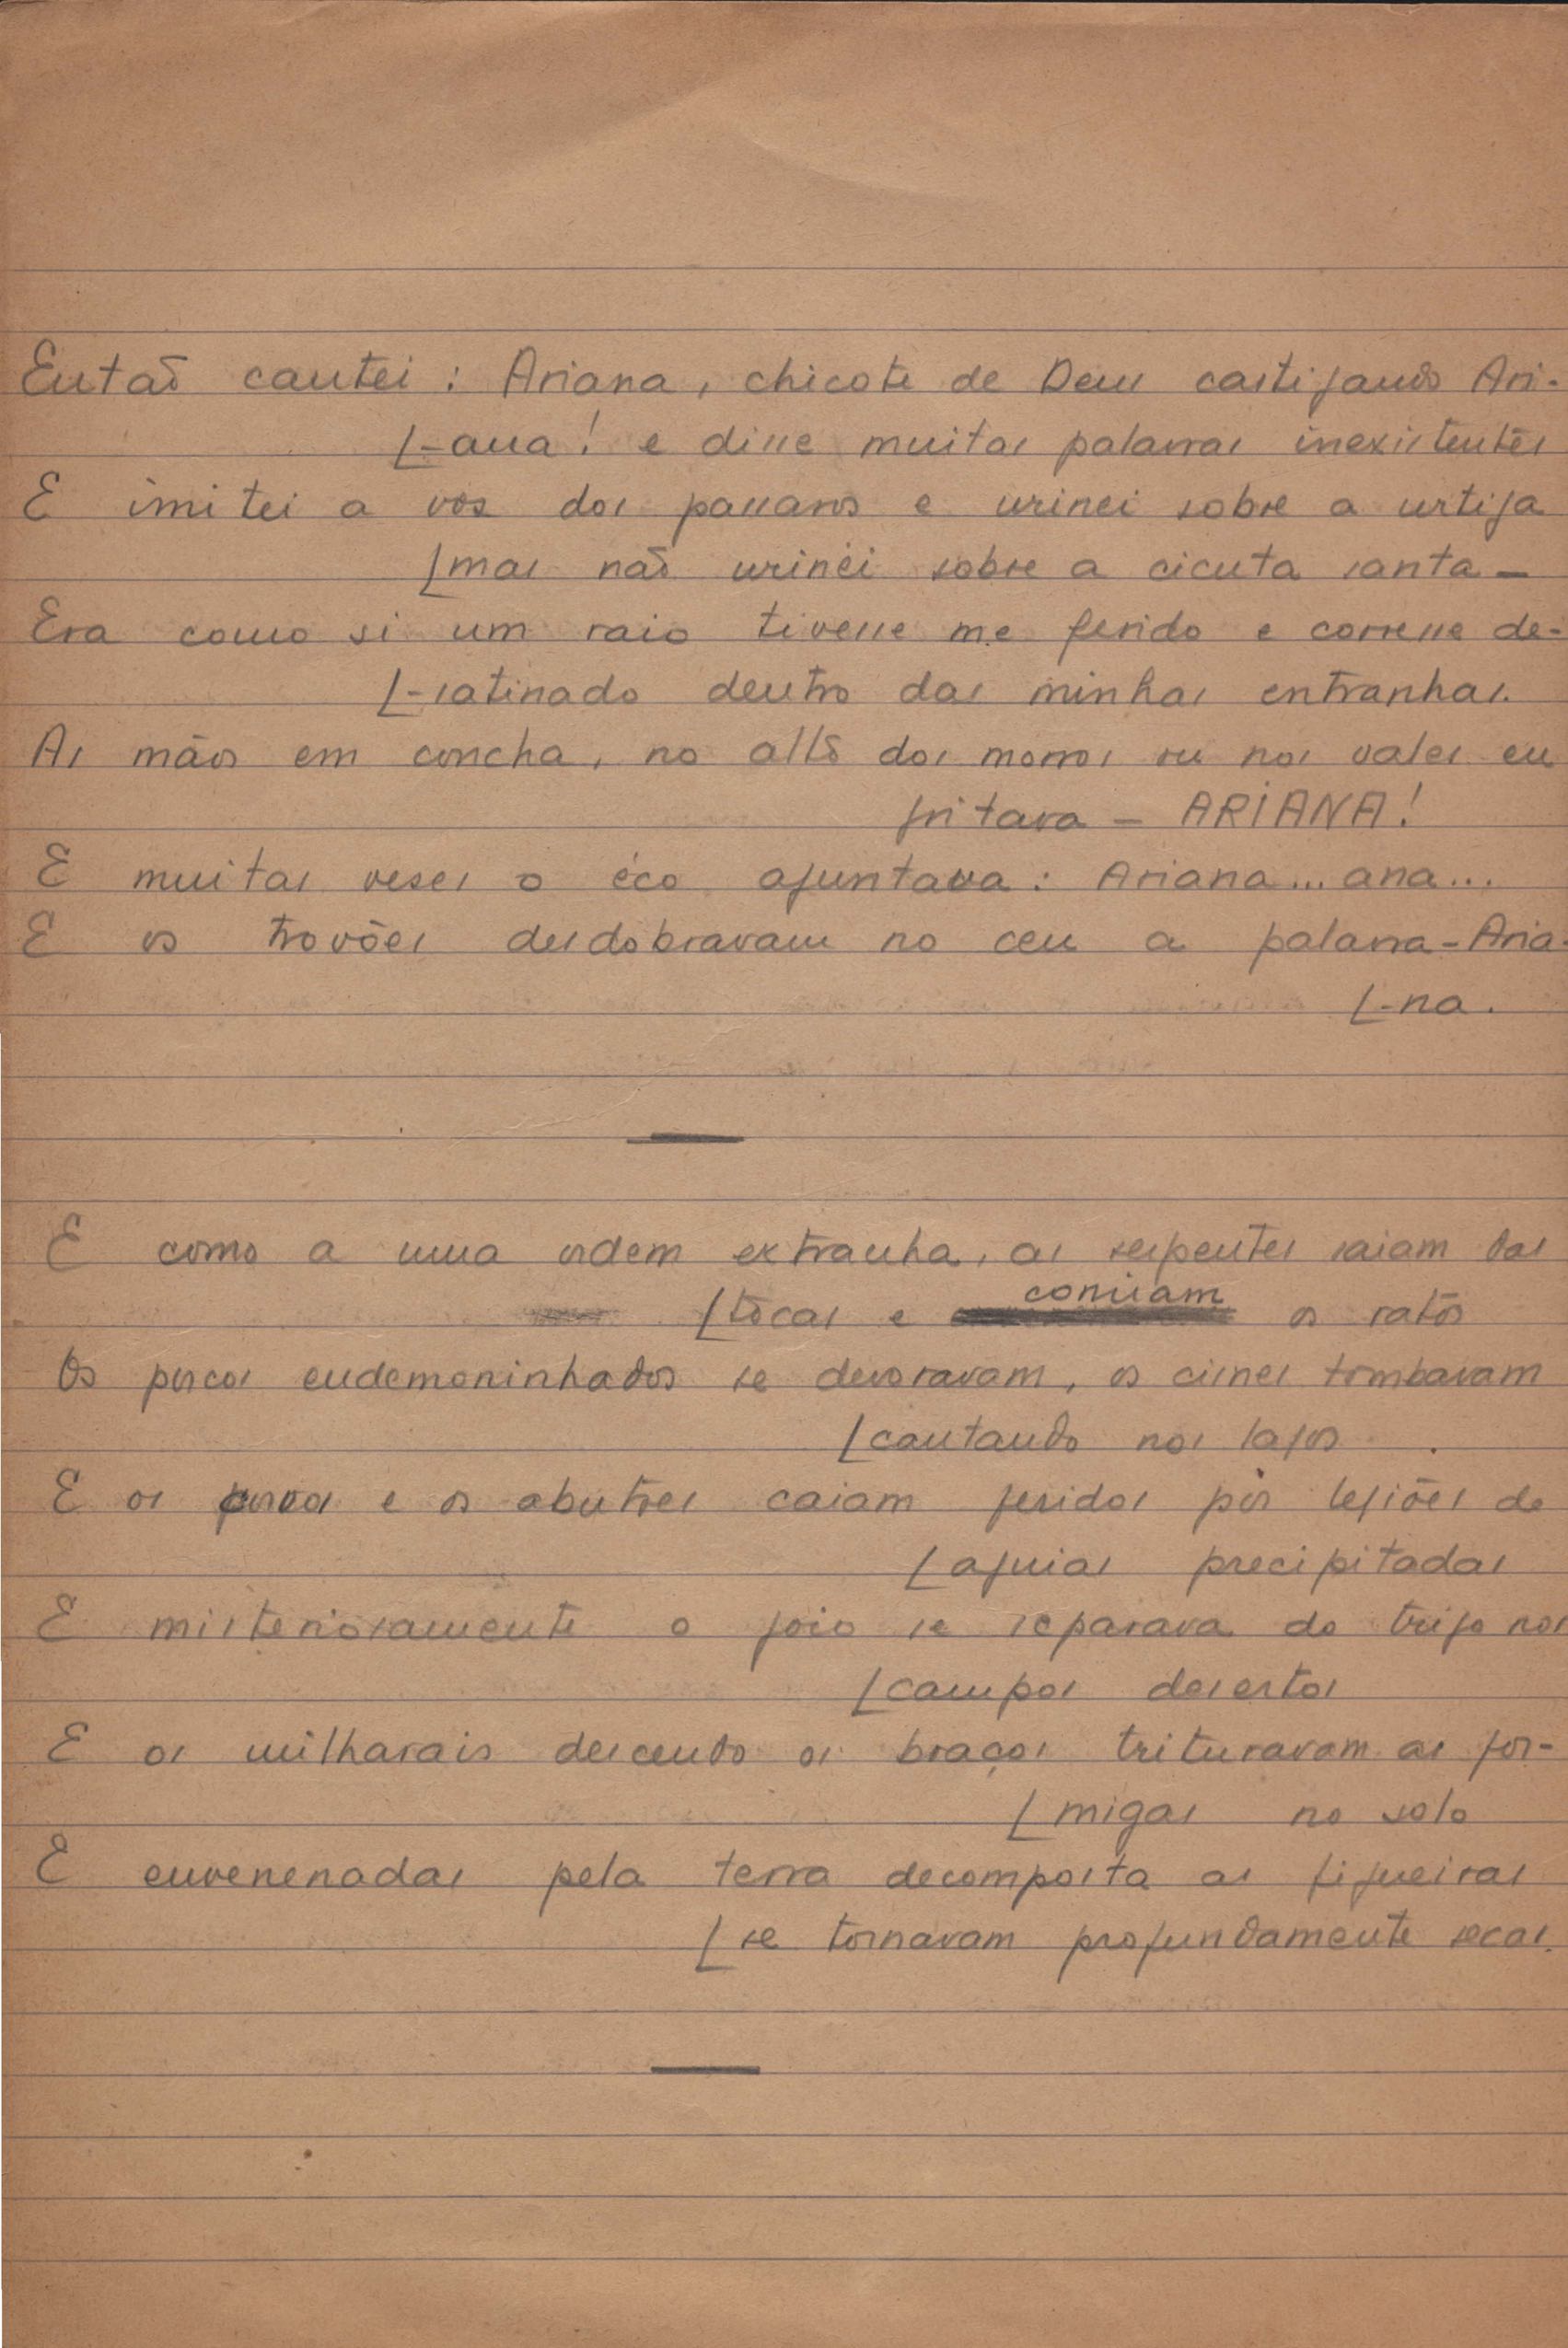 Então cantei: Ariana, chicote de Deus castigando Ari-
[-ana! e disse muitas palavras inexistentes
E imitei a vos dos passaros e urinei sobre a urtiga
[mas não urinei sobre a cicuta santa —
Era como si um raio tivesse me ferido e corresse de-
[-satinado dentro das minhas entranhas.
As mãos em concha, no alto dos morros ou nos vales eu
gritava — ARIANA!
E muitas veses o éco ajuntava: Ariana... ana...
E os trovões desdobravam no ceu a palavra - Aria-
[-na.
E como a uma ordem extranha, as serpentes saiam das
[tócas e comiam os ratos
Os porcos endemoninhados se devoravam, os cisnes tombavam
[cantando nos lagos.
E os corvos e os abutres caiam feridos por legiões de
[aguias precipitadas
E misteriosamente o joio se separava do trigo nos
[campos desertos
E os milharais descendo os braços trituravam as for-
[migas no solo
E envenenadas pela terra decomposta as figueiras
[se tornavam profundamente secas.